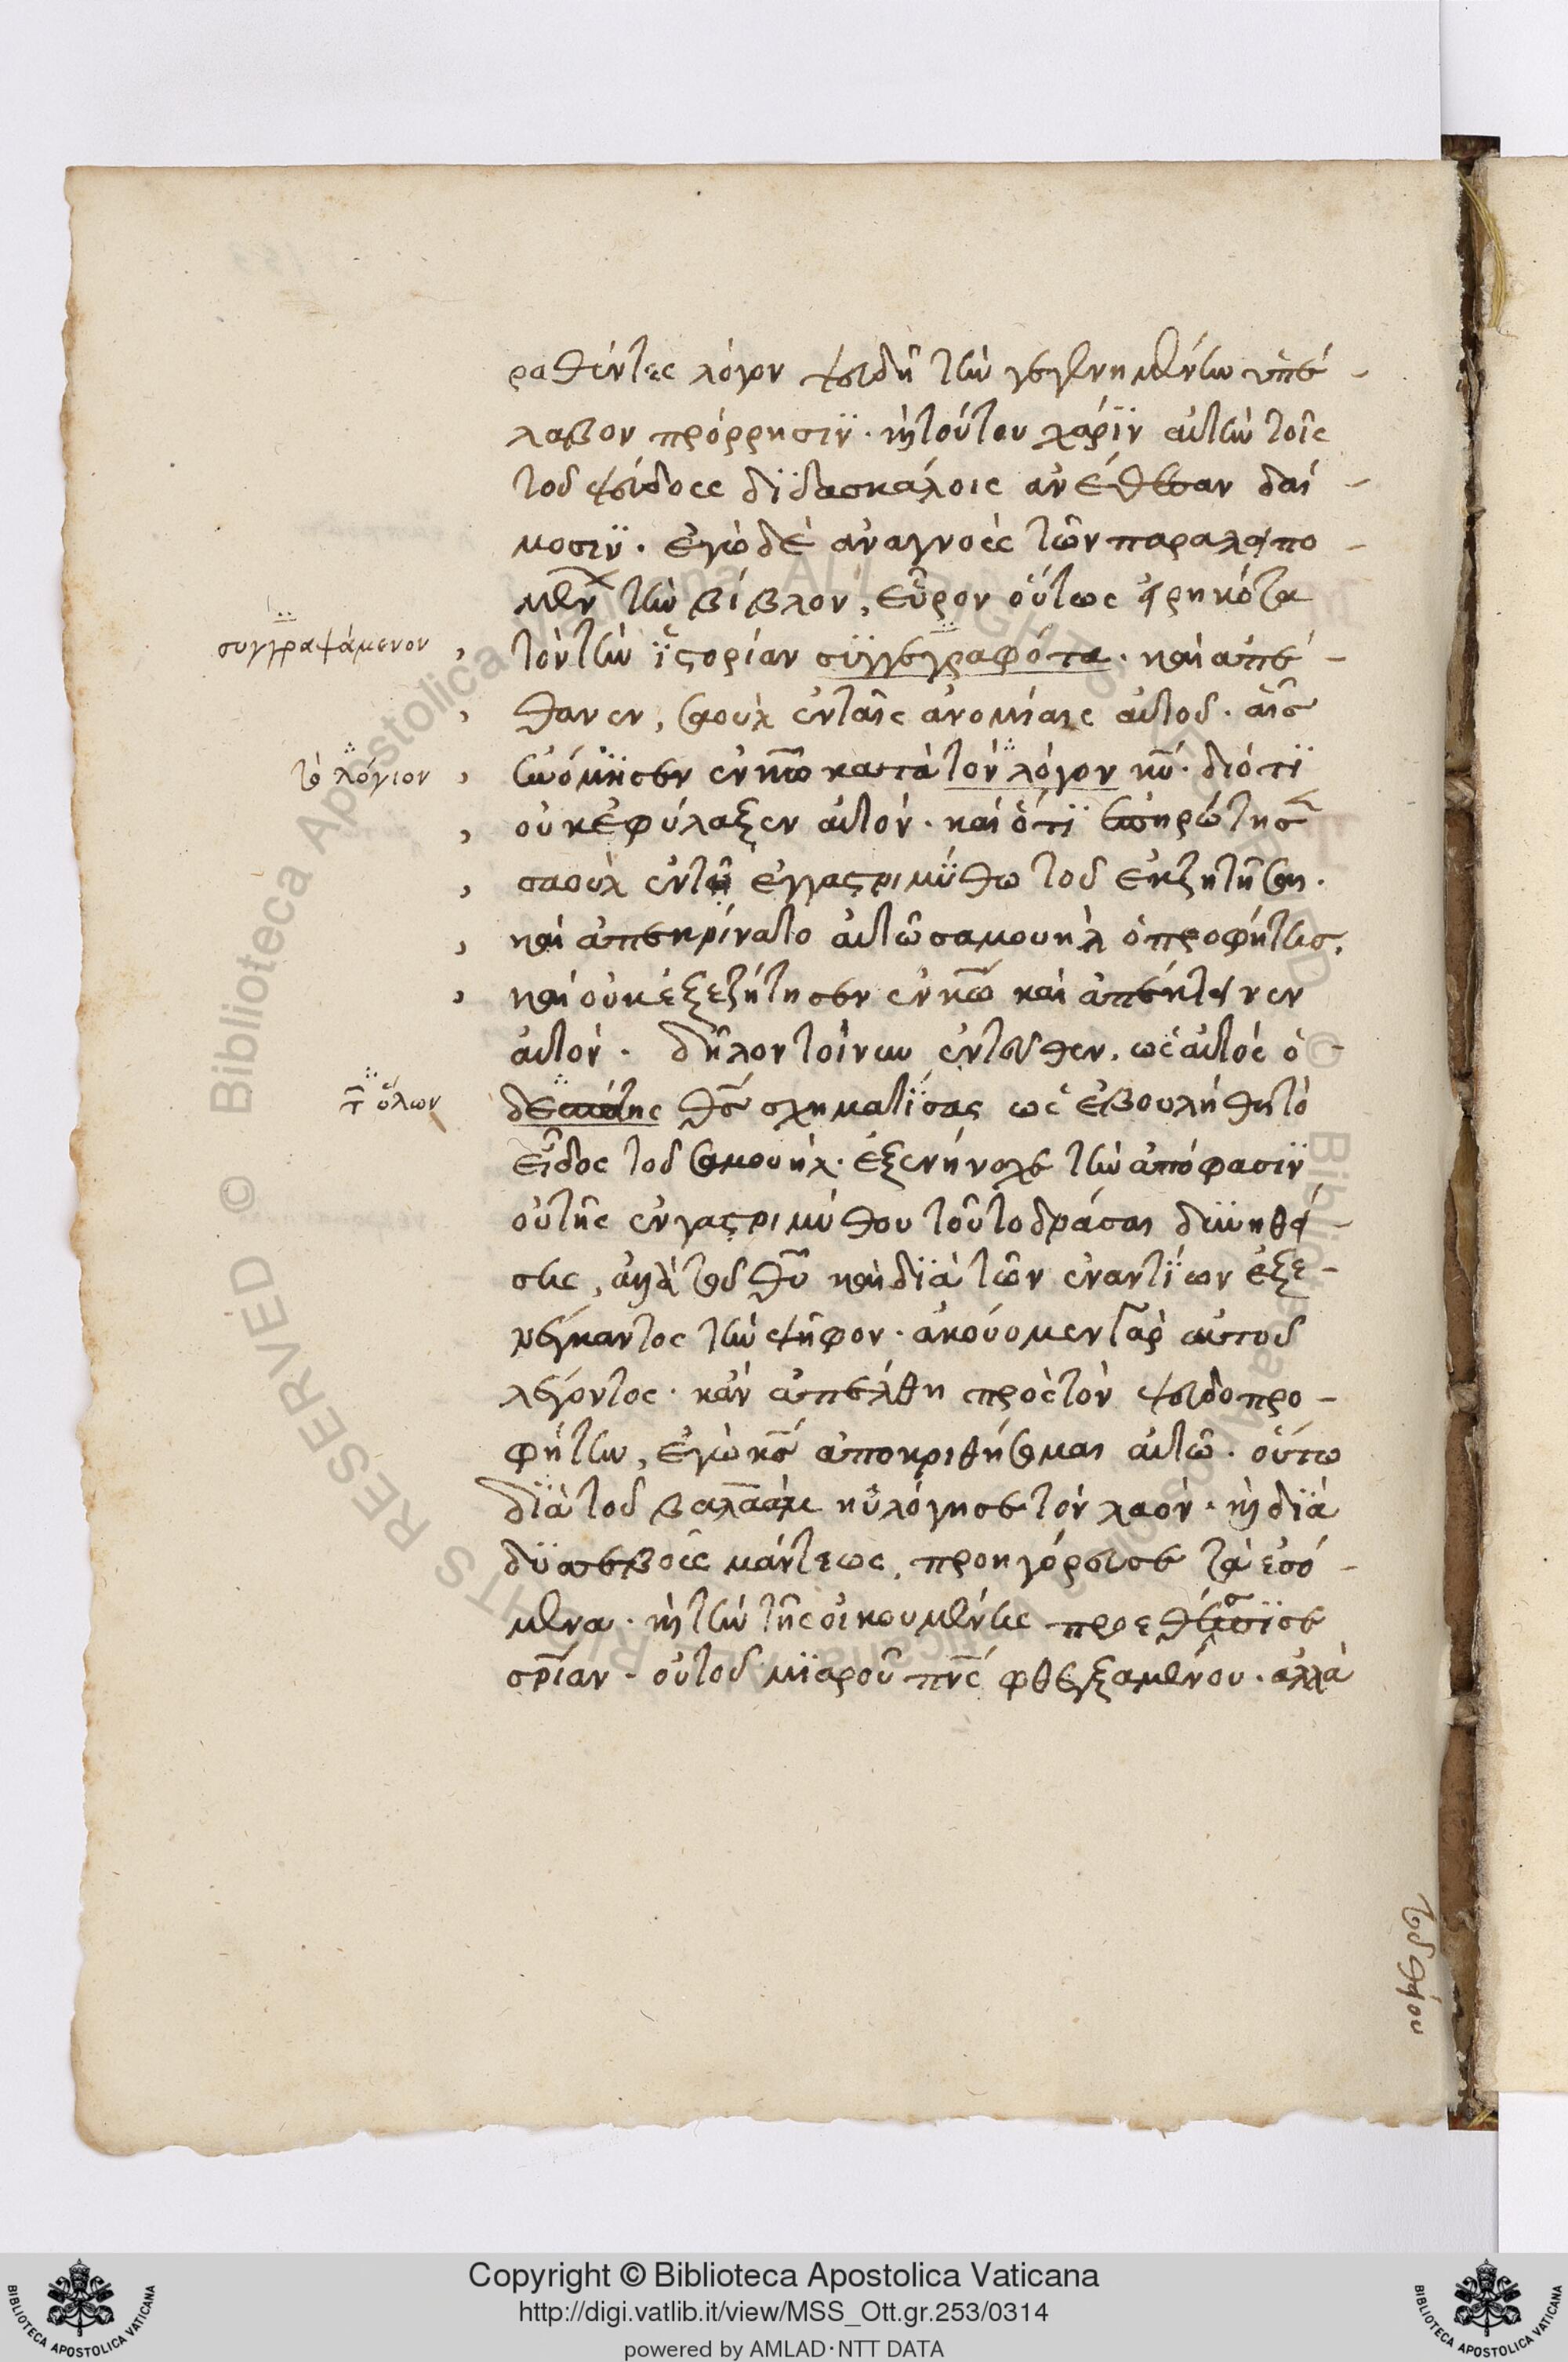 ραθέντες λόγον ψευδῆ τὴν γεγενημένην ὑπέ-
λαβον πρόρρησιν. καὶ τούτου χάριν αὐτὴν τοῖς
τοῦ ψεύδους διδασκάλοις ἀνέθεσαν δαί-
μοσιν. ἐγὼ δὲ ἀναγνοὺς τῶν παραλειπο-
μένων τὴν βίβλον, εὗρον οὕτως εἰρηκότα
συγγραψάμενον , τὸν τὴν ἱστορίαν συγγεγραφότα. καὶ ἀπέ-
, θανεν, σαοὺλ ἐν ταῖς ἀνομίαις αὐτοῦ. αἷς
τὸ λόγιον , ἠνόμησεν ἐν κω κατὰ τὸν λόγον κυ. διότι
, οὐκ ἐφύλαξεν αὐτόν. καὶ ὅτι ἐπηρώτησε
, σαοὺλ ἐν τῇ ἐγγαστριμύθω τοῦ ἐκζητῆσαι.
, καὶ ἀπεκρίνατο αὐτῶ σαμουὴλ ὁ προφήτης.
, καὶ οὐκ ἐξεζήτησεν ἐν κω καὶ ἀπέκτεινεν
αὐτόν. δῆλον τοίνυν ἐντεῦθεν. ὡς αὐτὸς ὁ
τ ὅλων δεσπότης θς σχηματίσας ὡς ἐβουλήθη τὸ
εἶδος τοῦ σαμουήλ. ἐξενήνοχε τὴν ἀπόφασιν
οὐ τῆς ἐγγαστριμύθου τοῦτο δράσαι δυνηθεί-
σης, ἀλλὰ τοῦ θυ καὶ διὰ τῶν ἐναντίων ἐξε-
νεγκαντος τὴν ψῆφον. ἀκούομεν γὰρ αὐτοῦ
λέγοντος. κἂν ἀπέλθη πρὸς τὸν ψευδοπρο-
φήτην, ἐγὼ κς ἀποκριθήσομαι αὐτῶ. οὕτω
διὰ τοῦ βαλαὰμ ηὐλόγησε τὸν λαόν. καὶ διὰ
δυσσεβοῦς μάντεως, προηγόρευσε τὰ ἐσό-
μενα. καὶ τὴν τῆς οἰκουμένης προεθέσπισε
σριαν. οὐ τοῦ μιαροῦ πνς φθεγξαμένου. ἀλλὰ
τοῦ θείου
Copyright © Biblioteca Apostolica Vaticana
http://digi.vatlib.it/view/MSS_Ott.gr.253/0314
powered by AMLAD·NTT DATA